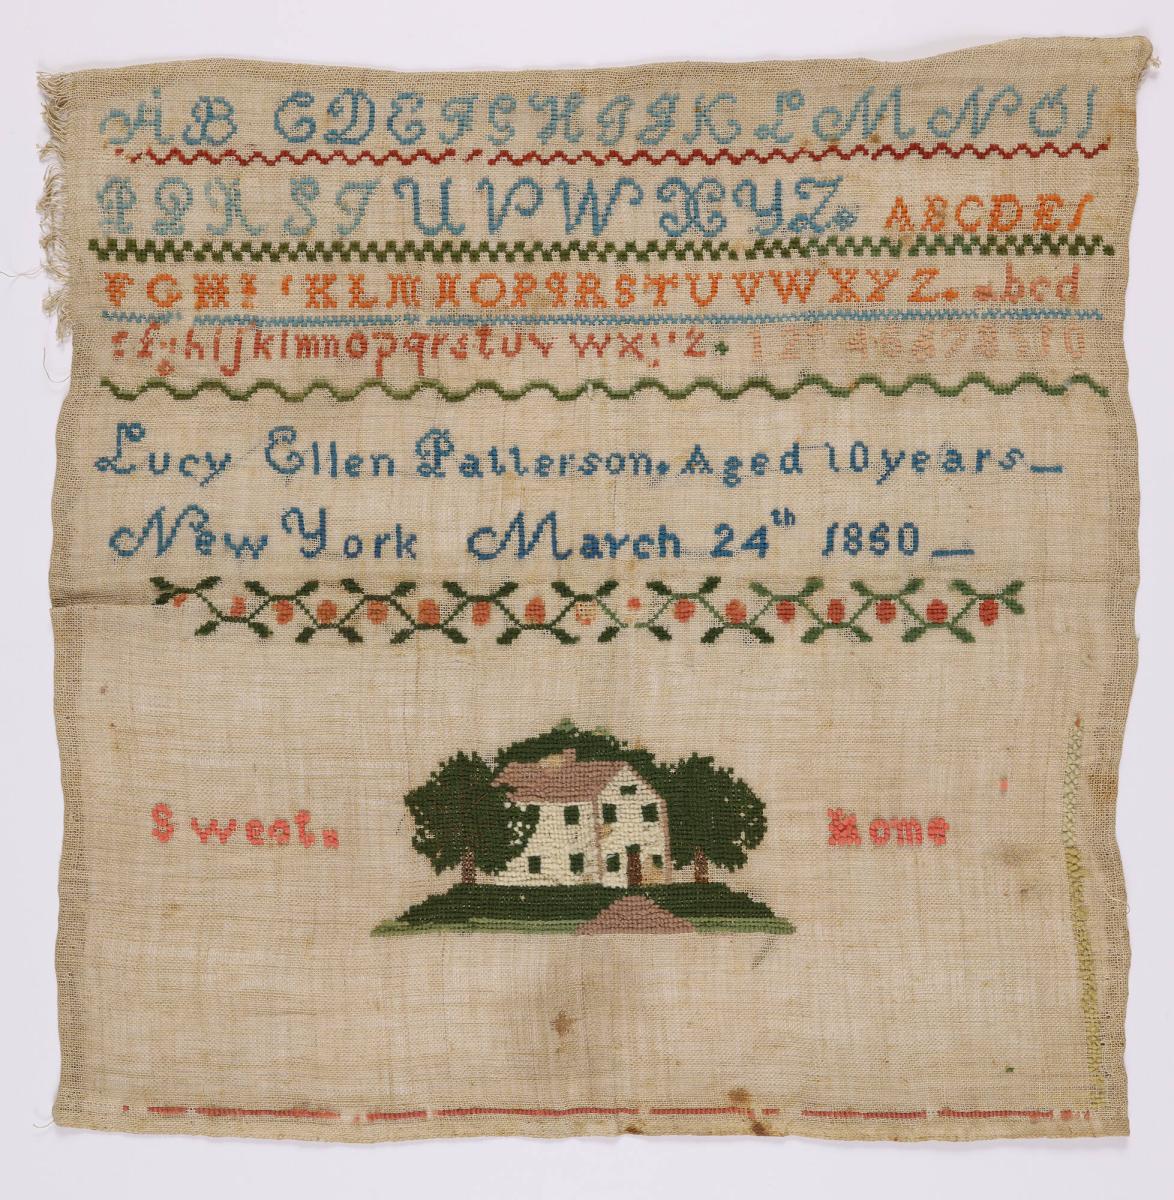 A B C D E F G H I J K L M N O
P Q R S T U V W X Y Z. A B C D E
F G H I J K L M N O P Q R S T U V W X Y Z. a b c d
e f g h i j k l m n o p q r s t u v w x y z. 1 2 4 5 6 7 8 9 10
Lucy Ellen Patterson. Aged 10 years_
New York March 24th 1860_
Sweet. Home